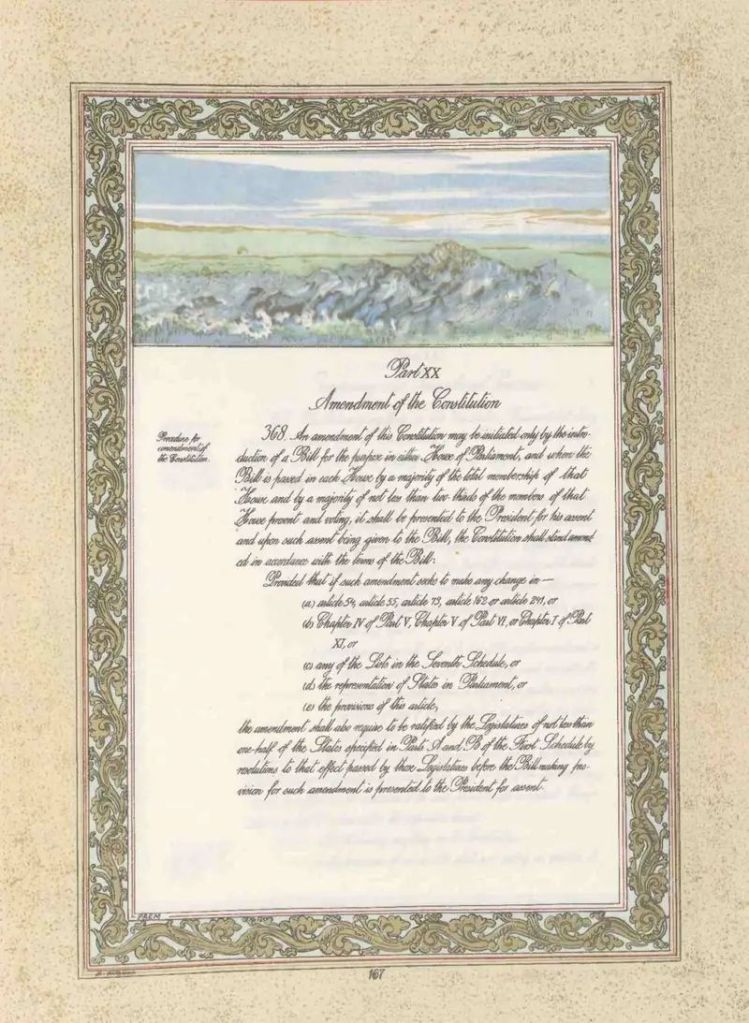 Part XX
Amendment of the Constitution
Procedure for
amendment of
the Constitution.
368. An amendment of this Constitution may be initiated only by the intro-
duction of a Bill for the purpose in either House of Parliament, and when the
Bill is passed in each House by a majority of the total membership of that
House and by a majority of not less than two thirds of the members of that
House present and voting, it shall be presented to the President for his assent
and upon such assent being given to the Bill, the Constitution shall stand amend
ed in accordance with the terms of the Bill:
Provided that if such amendment seeks to make any change in —
(a) article 54, article 55, article 73, article 162 or article 241, or
(b) Chapter IV of Part V, Chapter V of Part VI, or Chapter I of Part
XI, or
(c) any of the Lists in the Seventh Schedule, or
(d) the representation of States in Parliament, or
(e) the provisions of this article,
the amendment shall also require to be ratified by the Legislatures of not less than
one-half of the States specified in Parts A and B of the First Schedule by
resolutions to that effect passed by those Legislatures before the Bill making pro-
vision for such amendment is presented to the President for assent.
167